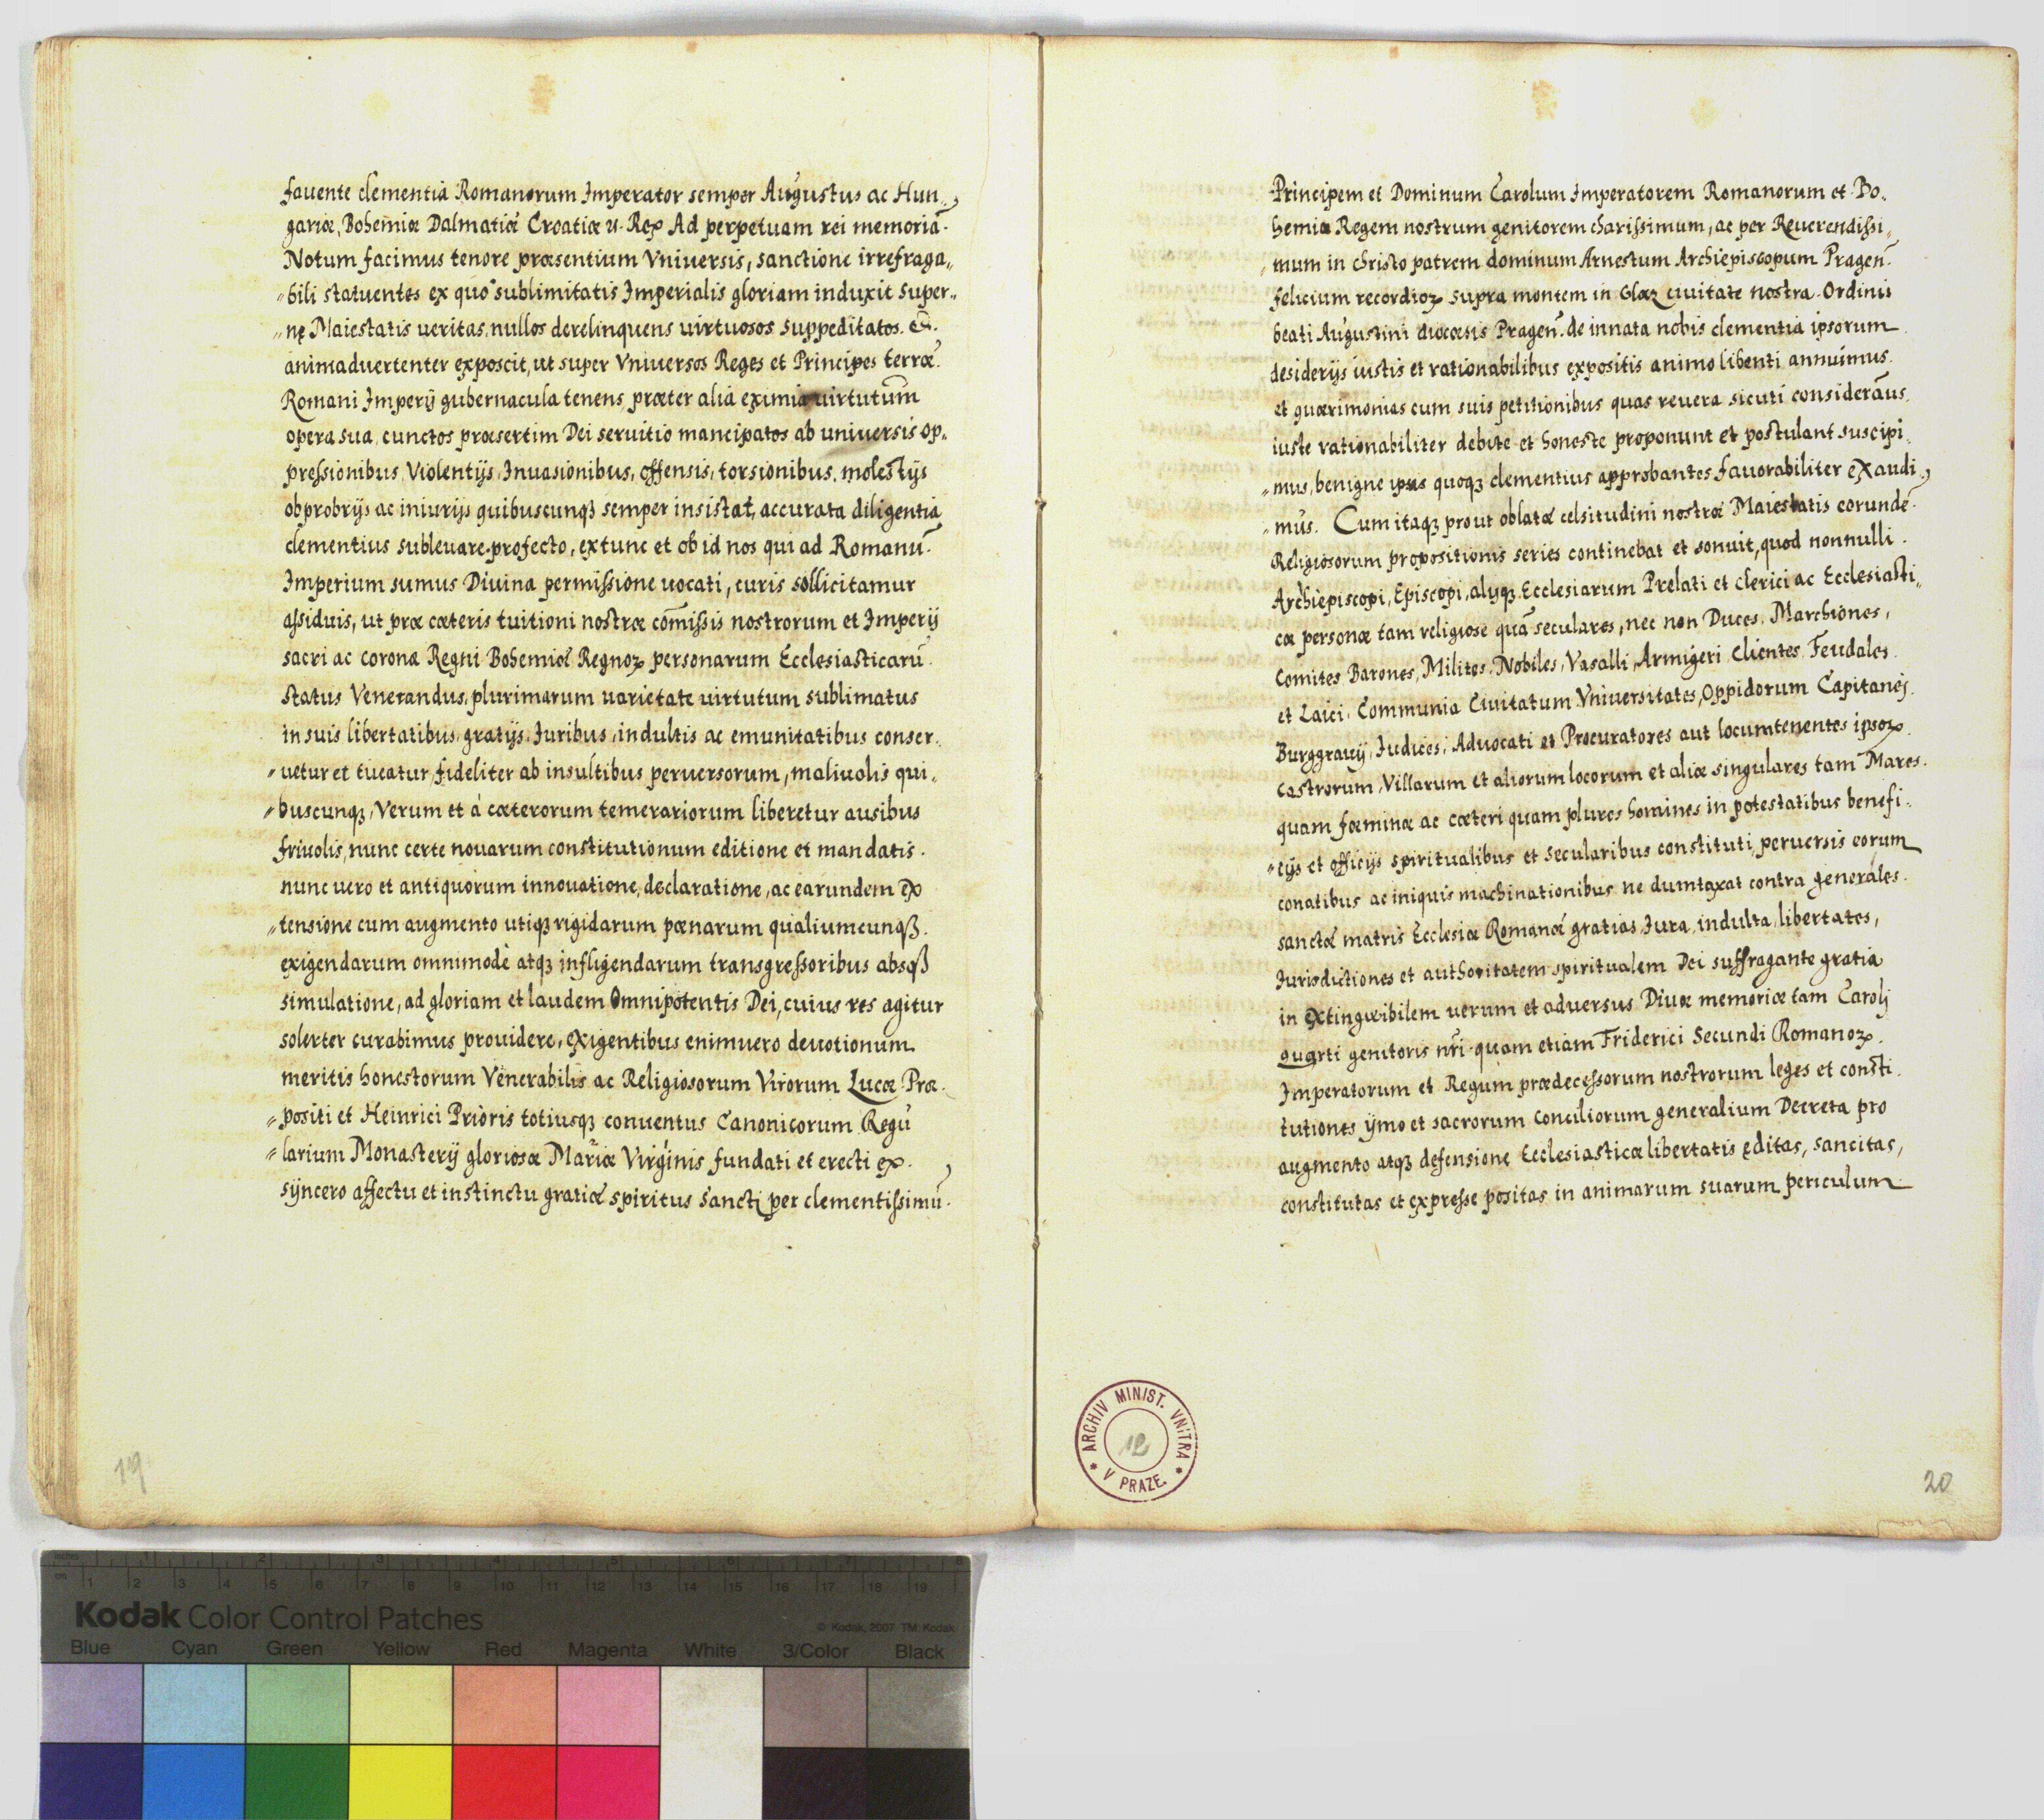 fauente clementia Romanorum Imperator semper Augustus ac Hun„
gariæ, Bohemiæ Dalmatiæ Croatiæ Rex Ad perpetuam rei memoriā.
Notum facimus tenore præsentium Vniuersis, sanctione irrefraga„
„bili statuentes ex quo sublimitatis Imperialis gloriam induxit super„
„nę Maiestatis ueritas, nullos derelinquens uirtuosos suppeditatos.
animaduertenter exposcit, ut super Vniuersos Reges et Principes terræ.
Romani Imperij gubernacula tenens, præter alia eximia uirtutum
opera sua, cunctos præsertim Dei seruitio mancipatos ab uniuersis op„
preſsionibus, Violentijs, Inuasionibus, offensis, torsionibus, molestijs
obprobrijs ac iniurijs quibuscunqꝫ semper insistat, accurata diligentia
clementius subleuare profecto, extunc et ob id nos qui ad Romanū.
Imperium sumus Diuina permiſsione uocati, curis sollicitamur
aſsiduis, ut præ cæteris tuitioni nostræ cōmiſsis nostrorum et Imperij
sacri ac coronæ Regni Bohemiæ Regnoꝝ personarum Ecclesiasticarū.
status Venerandus, plurimarum uarietate uirtutum sublimatus
in suis libertatibus, gratijs, Iuribus, indultis ac emunitatibus conser„
„uetur et tueatur fideliter ab insultibus peruersorum, maliuolis qui„
„buscunqꝫ, Verum et à cæterorum temerariorum liberetur ausibus
friuolis, nunc certe nouarum constitutionum editione et mandatis.
nunc uero et antiquorum innouatione, declaratione, ac earundem ex
„tensione cum augmento utiqꝫ rigidarum pœnarum qualiumcunqꝫ.
exigendarum omnimodè atqꝫ infligendarum transgreſsoribus absqꝫ
simulatione, ad gloriam et laudem Omnipotentis Dei, cuius res agitur
solerter curabimus prouidere, exigentibus enimuero deuotionum
meritis honestorum Venerabilis ac Religiosorum Virorum Lucæ Præ„
„positi et Heinrici Prioris totiusqꝫ conuentus Canonicorum Regu
„larium Monasterij gloriosæ Mariæ Virginis fundati et erecti ex.
syncero affectu et instinctu gratiæ spiritus sancti per clementiſsimū.
19
Principem et Dominum Carolum Imperatorem Romanorum et Bo„
hemiæ Regem nostrum genitorem chariſsimum, ac per Reuerendiſsi„
„mum in christo patrem dominum Arnestum Archiepiscopum Pragen̄.
felicium recordioꝝ supra montem in Glaz ciuitate nostra. Ordinis
beati Augustini diœcesis Pragen̄. de innata nobis clementia ipsorum
desiderijs iustis et rationabilibus expositis animo libenti annuimus.
et quærimonias cum suis petitionibus quas reuera sicuti considerāus.
iuste rationabiliter debite et honeste proponunt et postulant suscipi„
„mus, benigne quoqꝫ clementius approbantes fauorabiliter exaudi„
„mus. Cum itaqꝫ prout oblatæ celsitudini nostræ Maiestatis eorundē.
Religiosorum propositionis series continebat et sonuit, quod nonnulli.
Archiepiscopi, Episcopi, alijqꝫ Ecclesiarum Prelati et Clerici ac Ecclesiasti„
cæ personæ tam religiose quā seculares, nec non Duces, Marchiones,
Comites Barones, Milites, Nobiles, Vasalli, Armigeri Clientes Feudales
et Laici, Communia Ciuitatum Vniuersitates, Oppidorum Capitanej.
Burggrauij, Iudices, Aduocati et Procuratores aut locumtenentes ipsoꝝ
castrorum, Villarum et aliorum locorum et aliæ singulares tam Mares.
quam fœminæ ac cæteri quam plures homines in potestatibus benefi„
„cijs et officijs spiritualibus et secularibus constituti, peruersis eorum
conatibus ac iniquis machinationibus ne dumtaxat contra generales.
sanctæ matris Ecclesiæ Romanæ gratias, Iura, indulta, libertates,
Iurisdictiones et authoritatem spiritualem Dei suffragante gratia
in extinguibilem uerum et aduersus Diuæ memoriæ tam Carolj
quarti genitoris nr̄i quam etiam Friderici Secundi Romanoꝝ.
Imperatorum et Regum prædeceſsorum nostrorum leges et consti.
tutiones ijmo et sacrorum Conciliorum generalium Decreta pro
augmento atqꝫ defensione Ecclesiasticæ libertatis ęditas, sancitas,
constitutas et expreſse positas in animarum suarum periculum
ARCHIV MINIST. VNITRA * V PRAZE. *
12
20
inches 1 2 3 4 5 6 7 8
cm 1 2 3 4 5 6 7 8 9 10 11 12 13 14 15 16 17 18 19
Kodak Color Control Patches
© Kodak, 2007 TM: Kodak
Blue Cyan Green Yellow Red Magenta White 3/Color Black